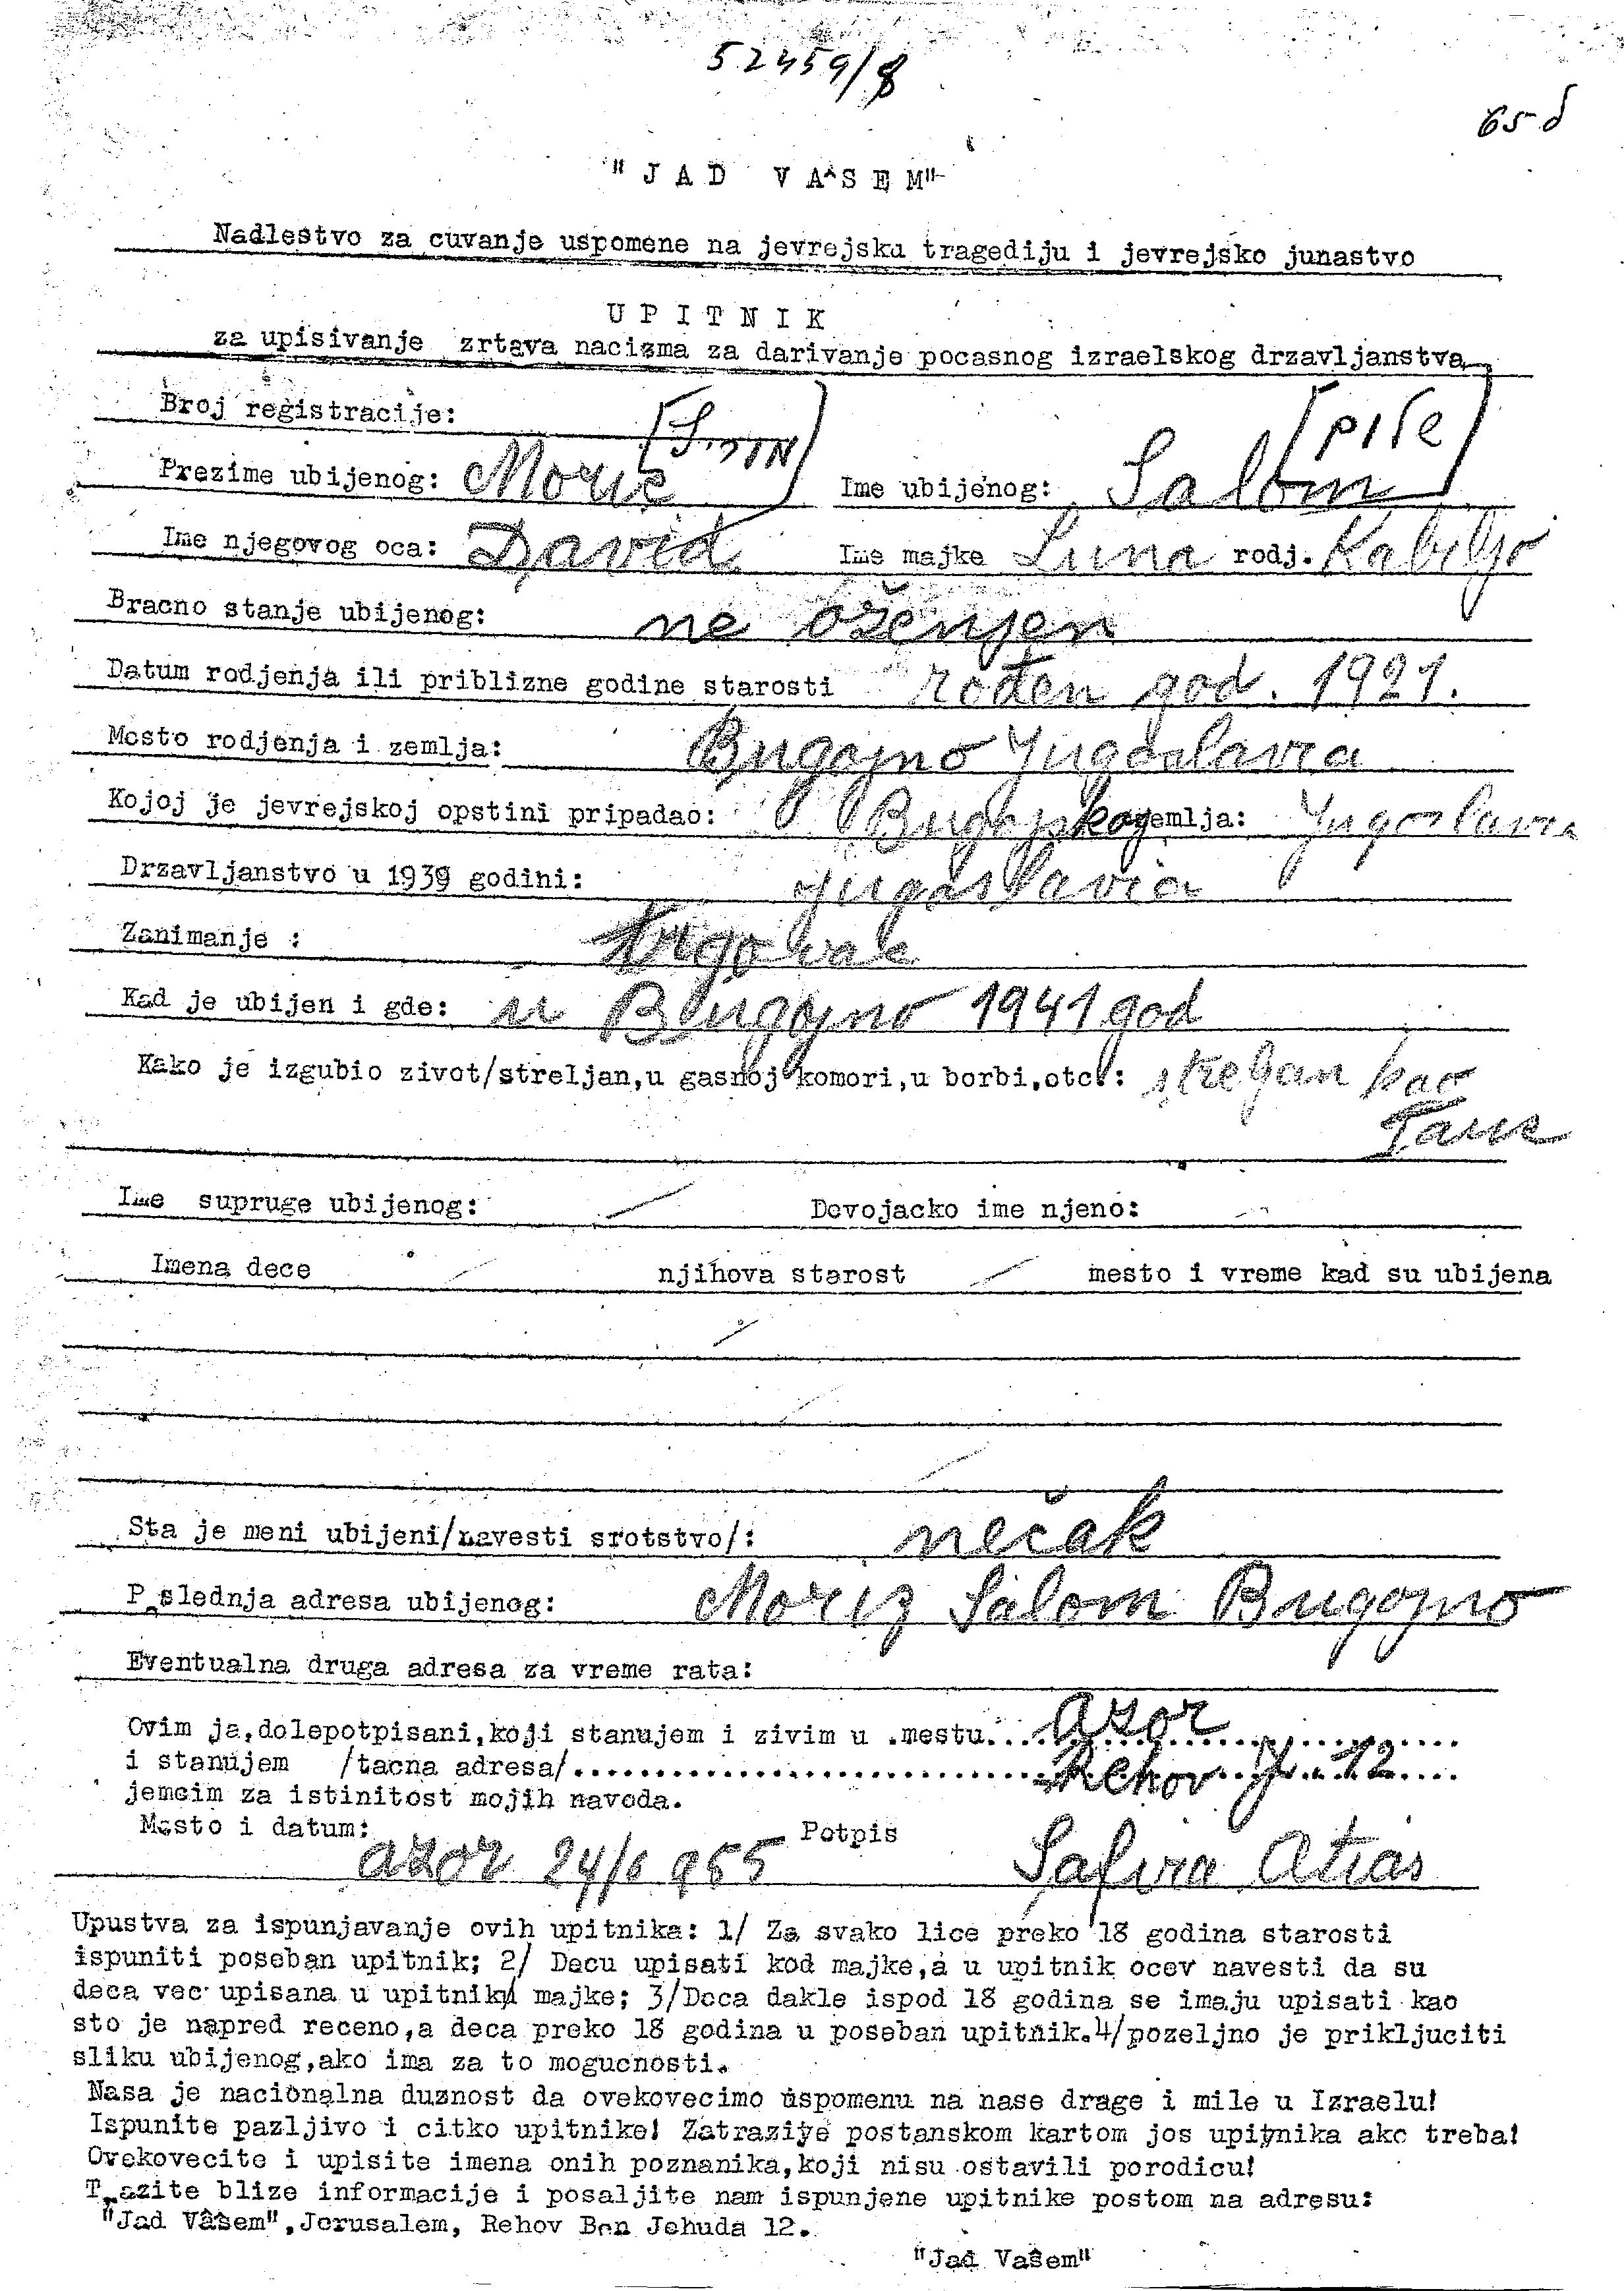 52459/8
65 d
"JAD VAŠEM"
Nadlestvo za cuvanje uspomene na jevrejsku tragediju i jevrejsko junastvo
UPITNIK
za upisivanje zrtava nacizma za darivanje pocasnog izraelskog drzavljanstva
Broj registracije:
Prezime ubijenog: Moric Ime ubijenog: Salom
Ime njegovog oca: David Ime majke Luna rodj. Kabiljo
Bracno stanje ubijenog: ne oženjen
Datum rodjenja ili priblizne godine starosti rođen god. 1921.
Mesto rodjenja i zemlja: Bugojno Jugoslavia
Kojoj je jevrejskoj opstini pripadao: Bugojskoj zemlja: Jugoslavia
Drzavljanstvo u 1939 godini: Jugoslavia
Zanimanje : trgovac
Kad je ubijen i gde: u Bugojno 1941 god
Kako je izgubio zivot/streljan,u gasnoj komori,u borbi,otc.: streljan kao
Ime supruge ubijenog: / Devojacko ime njeno: -
Imena dece / njihova starost / mesto i vreme kad su ubijena
Sta je meni ubijeni/navesti srotstvo/: nečak
P slednja adresa ubijenog: Moriz Salom Bugojno
Eventualna druga adresa za vreme rata:
Ovim ja,dolepotpisani,koji stanujem i zivim u mestu... Azor
i stanujem /tacna adresa/........ Rehov J. 12
jemcim za istinitost mojih navoda.
Mesto i datum: Potpis
Azor 24/6 955 Safira Atias
Upustva za ispunjavanje ovih upitnika: 1/ Za svako lice preko 18 godina starosti
ispuniti poseban upitnik; 2/ Decu upisati kod majke,a u upitnik ocev navesti da su
deca vec upisana u upitniku majke; 3/Deca dakle ispod 18 godina se imaju upisati kao
sto je napred receno,a deca preko 18 godina u poseban upitnik.4/pozeljno je prikljuciti
sliku ubijenog,ako ima za to mogucnosti.
Nasa je nacionalna duznost da ovekovecimo uspomenu na nase drage i mile u Izraelu!
Ispunite pazljivo i citko upitnike! Zatrazite postanskom kartom jos upitnika ako treba!
Ovekovecite i upisite imena onih poznanika,koji nisu ostavili porodicu!
T azite blize informacije i posaljite nam ispunjene upitnike postom na adresu:
"Jad Vašem",Jerusalem, Rehov Ben Jehuda 12.
"Jad Vašem"